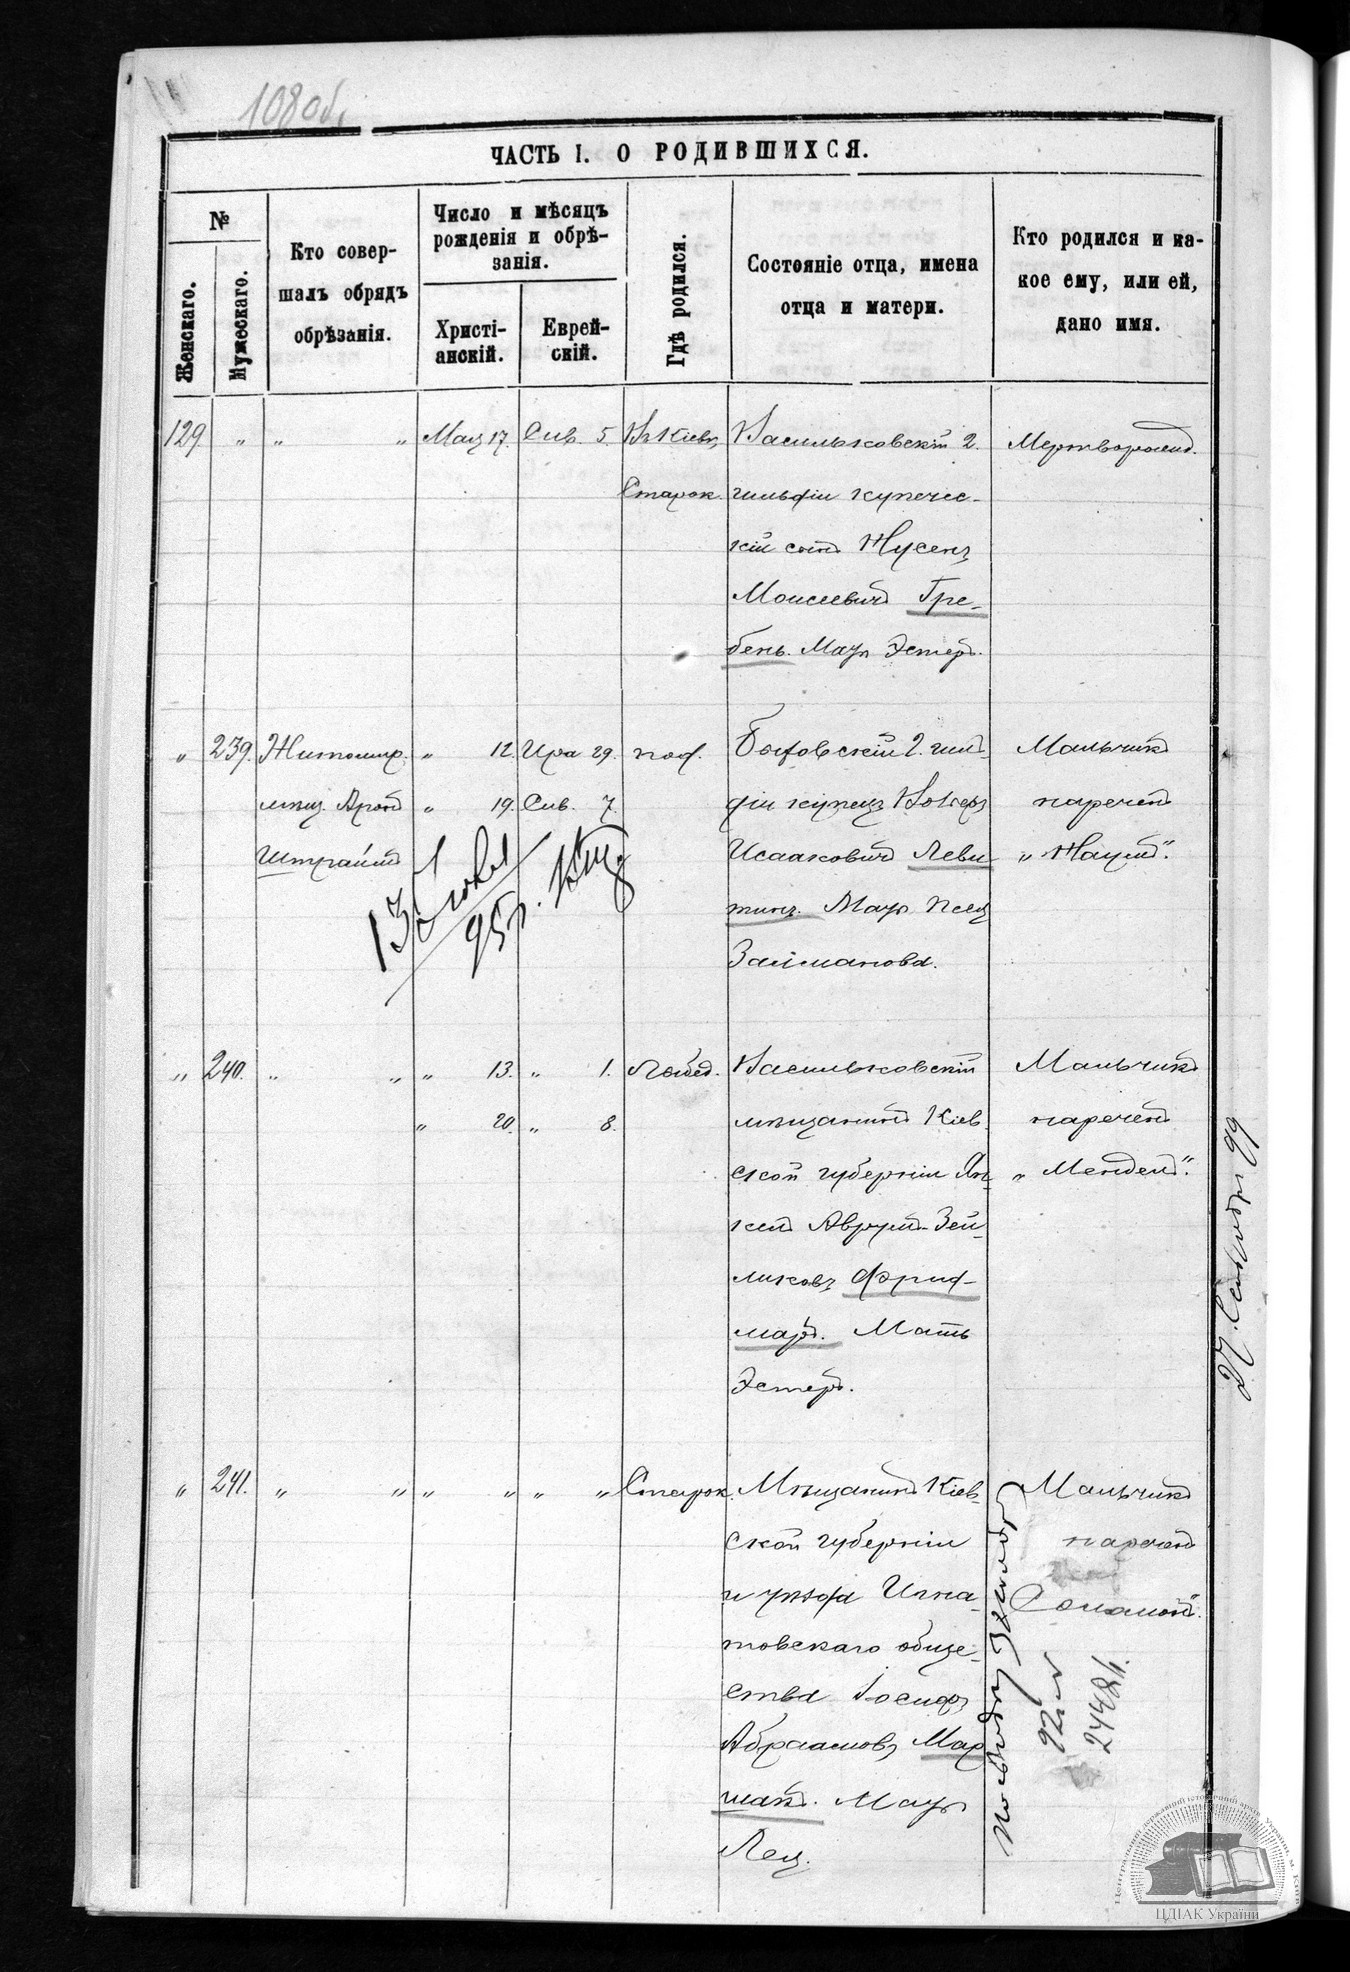 108 об.
ЧАСТЬ I. О РОДИВШИХСЯ.
№
Женскаго.
Мужескаго.
Кто совер-
шалъ обрядъ
обрѣзанія.
Число и мѣсяцъ
рожденія и обрѣ-
занія.
Христі-
анскій.
Еврей-
скій.
Гдѣ родился.
Состояніе отца, имена
отца и матери.
Кто родился и ка-
кое ему, или ей,
дано имя.
129 " " " Мая 17. Сив. 5.
Старок.
Васильковскій 2.
гильдіи купечес-
кій сынъ Нусенъ
Моисеевичъ Гре-
бень. Мать Эстеръ.
Мертворожд.
" 239. Житомир. " 12. Ира 29. под.
мѣщ. Аронъ " 19. Сив. 7.
2. гил-
діи купецъ
Исааковичъ Леви-
тинъ. Мать
Займанова.
Мальчикъ
нареченъ
"Наумъ".
95 г.
" 240. " " " 13. " 1. Лыбед.
" 20. " 8.
Васильковскій
мѣщанинъ Кіев-
ской губерніи Ян-
кель Аврумъ-Зей-
ликовъ Фрид-
маръ. Мать
Эстеръ.
Мальчикъ
нареченъ
"Мендель".
99
" 241. " " " " " " Старок.
Мѣщанинъ Кіев-
ской губерніи
и уѣзда Игна-
товскаго обще-
ства Іосифъ
Абрамовъ Мар-
шакъ. Мать
Лея.
Мальчикъ
нареченъ
Соломонъ".
92
2448
ЦДІАК України